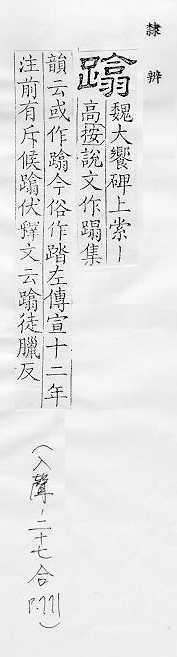 隸辨
蹹 魏大饗碑上索丨
高按說文作蹋集
韻云或作蹹今俗作踏左傳宣十二年
注前有斥候蹹伏釋文云蹹徒臘反
(入聲-二十七合 P.771)